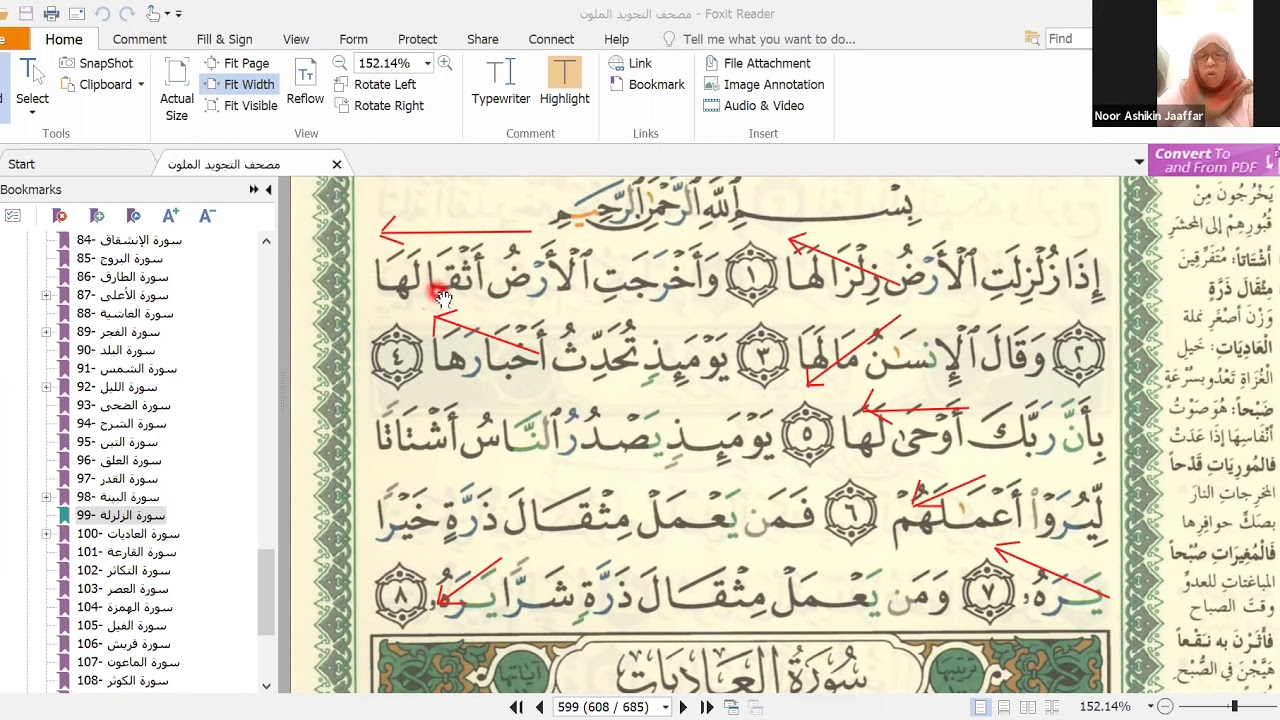 مصحف التجويد الملون - Foxit Reader
Home Comment Fill & Sign View Form Protect Share Connect Help Tell me what you want to do... Find
Select
SnapShot
Clipboard
Tools
Actual Size
Fit Page
Fit Width
Fit Visible
Reflow
152.14%
Rotate Left
Rotate Right
View
Typewriter
Highlight
Comment
Link
Bookmark
Links
File Attachment
Image Annotation
Audio & Video
Insert
Noor Ashikin Jaaffar
Start
مصحف التجويد الملون
Convert To
and From PDF
Bookmarks
84- سورة الإنشقاق
85- سورة البروج
86- سورة الطارق
87- سورة الأعلى
88- سورة الغاشية
89- سورة الفجر
90- سورة البلد
91- سورة الشمس
92- سورة الليل
93- سورة الضحى
94- سورة الشرح
95- سورة التين
96- سورة العلق
97- سورة القدر
98- سورة البينة
99- سورة الزلزلة
100- سورة العاديات
101- سورة القارعة
102- سورة التكاثر
103- سورة العصر
104- سورة الهمزة
105- سورة الفيل
106- سورة قريش
107- سورة الماعون
108- سورة الكوثر
بِسْمِ اللَّهِ الرَّحْمَٰنِ الرَّحِيمِ
إِذَا زُلْزِلَتِ ٱلْأَرْضُ زِلْزَالَهَا ١ وَأَخْرَجَتِ ٱلْأَرْضُ أَثْقَالَهَا
٢ وَقَالَ ٱلْإِنسَـٰنُ مَا لَهَا ٣ يَوْمَئِذٍ تُحَدِّثُ أَخْبَارَهَا ٤
بِأَنَّ رَبَّكَ أَوْحَىٰ لَهَا ٥ يَوْمَئِذٍ يَصْدُرُ ٱلنَّاسُ أَشْتَاتًا
لِّيُرَوْا۟ أَعْمَـٰلَهُمْ ٦ فَمَن يَعْمَلْ مِثْقَالَ ذَرَّةٍ خَيْرًا
يَرَهُۥ ٧ وَمَن يَعْمَلْ مِثْقَالَ ذَرَّةٍ شَرًّا يَرَهُۥ ٨
ترتيبها
سُورَةُ الْعَادِيَات
آياتها
يَخْرُجُونَ مِنْ
قُبُورِهِمْ إلى المحشر
أَشْتَاتًا: مُتَفَرِّقِينَ
مِثْقَالَ ذَرَّةٍ
وَزْنَ أَصْغَرِ نملة
الْعَادِيَاتِ: خَيلِ
الْغُزَاةِ تَعْدُو بسُرْعَةٍ
ضَبْحاً: هُوَ صَوْتُ
أَنْفَاسِهَا إِذَا عَدَتْ
فالمُورِيَاتِ قَدْحاً
المخرجات النارَ
بصكِّ حوافِرِها
فَالْمُغِيرَاتِ صُبْحاً
المباغتات للعدوِّ
وقت الصباح
فأَثَرْنَ به نَقْعاً
هَيَّجْنَ في الصُّبْحِ
599 (608 / 685)
152.14%